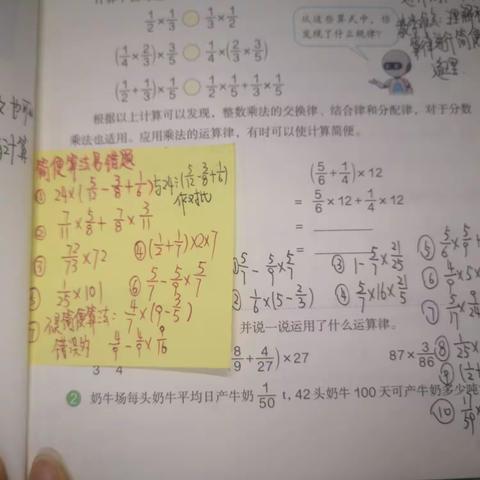 1/2 × 1/3 ○ 1/3 × 1/2
(1/4 × 2/3) × 3/5 ○ 1/4 × (2/3 × 3/5)
(1/2 + 1/3) × 1/5 ○ 1/2 × 1/5 + 1/3 × 1/5
从这些算式中，你
发现了什么规律？
根据以上计算可以发现，整数乘法的交换律、结合律和分配律，对于分数
乘法也适用。应用乘法的运算律，有时可以使计算简便。
简便算法易错题
① 24×(5/12 - 3/8 + 1/6) 与 24÷(5/12 - 3/8 + 1/6)
作对比
② 7/11 × 5/8 + 7/8 × 3/11
③ 72/73 × 72
④ (1/2 + 1/7)×2×7
⑤ 1/25 × 101
⑥ 5/7 - 5/9 × 5/7
⑦ 误简便算法: 4/7 × (9 - 3/5)
错误的 4/9 - 4/9 × 9/16
(5/6 + 1/4) × 12
= 5/6 × 12 + 1/4 × 12
=
=
5/7 - 5/9 × 5/7
③ 1 - 5/7 × 21/25
② 1/6 × (5 - 2/3)
④ 5/7 × 16 × 21/5
⑤ 5/6 × 5/9
⑥ 4/9 × 5
⑦ 5/7 × 9/24
⑧ 1/25
⑨ (1/2
⑩ 1/59
并说一说运用了什么运算律。
8/9 + 4/27) × 27
87 × 3/86
3 4
2 奶牛场每头奶牛平均日产牛奶 1/50 t，42 头奶牛 100 天可产牛奶多少吨